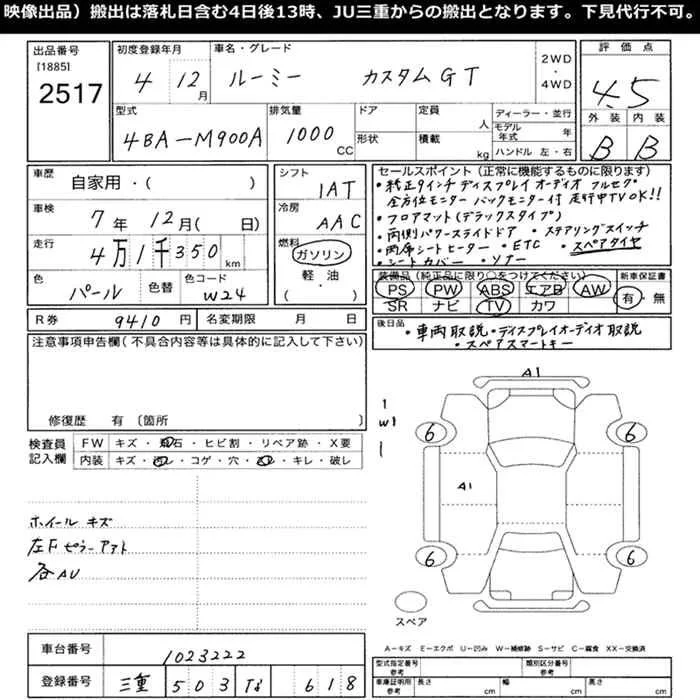 映像出品）搬出は落札日含む4日後13時、JU三重からの搬出となります。下見代行不可。
出品番号
[1885]
2517
初度登録年月
4 12月
車名・グレード
ルーミー カスタムGT
2WD
・
4WD
評価点
4.5
外装 内装
B B
型式
4BA-M900A
排気量
1000
CC
ドア
形状
定員
人
積載
kg
ディーラー・並行
モデル年式 年
ハンドル 左・右
車歴
自家用・( )
車検
7年12月( 日)
走行
4万1千350km
色
パール
色替
色コード
W24
シフト
IAT
冷房
AAC
燃料
ガソリン
・
軽・油
( )
セールスポイント（正常に機能するものに限ります）
・純正9インチディスプレイオーディオ フルセグ
全方位モニター バックモニター付 走行中TVOK!!
・フロアマット(デラックスタイプ)
・両側パワースライドドア ・ステアリングスイッチ
・両席シートヒーター ・ETC ・スペアタイヤ
・シートカバー ・ソナー
装備品（純正品に限り○をつけてください）
PS PW ABS エアB AW
SR ナビ TV カワ
新車保証書
有・無
R券 9410円
名変期限 月 日
後日品
・車両取説・ディスプレイオーディオ取説
・スペアスマートキー
注意事項申告欄（不具合内容等は具体的に記入して下さい）
修復歴 有〔箇所 〕
検査員
記入欄
FW キズ・飛石・ヒビ割・リペア跡・X要
内装 キズ・汚レ・コゲ・穴・スレ・キレ・破レ
ホイールキズ
左Fピラーアト
各AU
A1
W1
6 6
A1
6 6
スペア
A－キズ E－エクボ U－凹み W－補修跡 S－サビ C－腐食 XX－交換済
車台番号 1023222
登録番号 三重 503 な 618
型式指定番号
参考
類別区分番号
参考
車庫証明用
参考
長さ cm
幅 cm
高さ cm